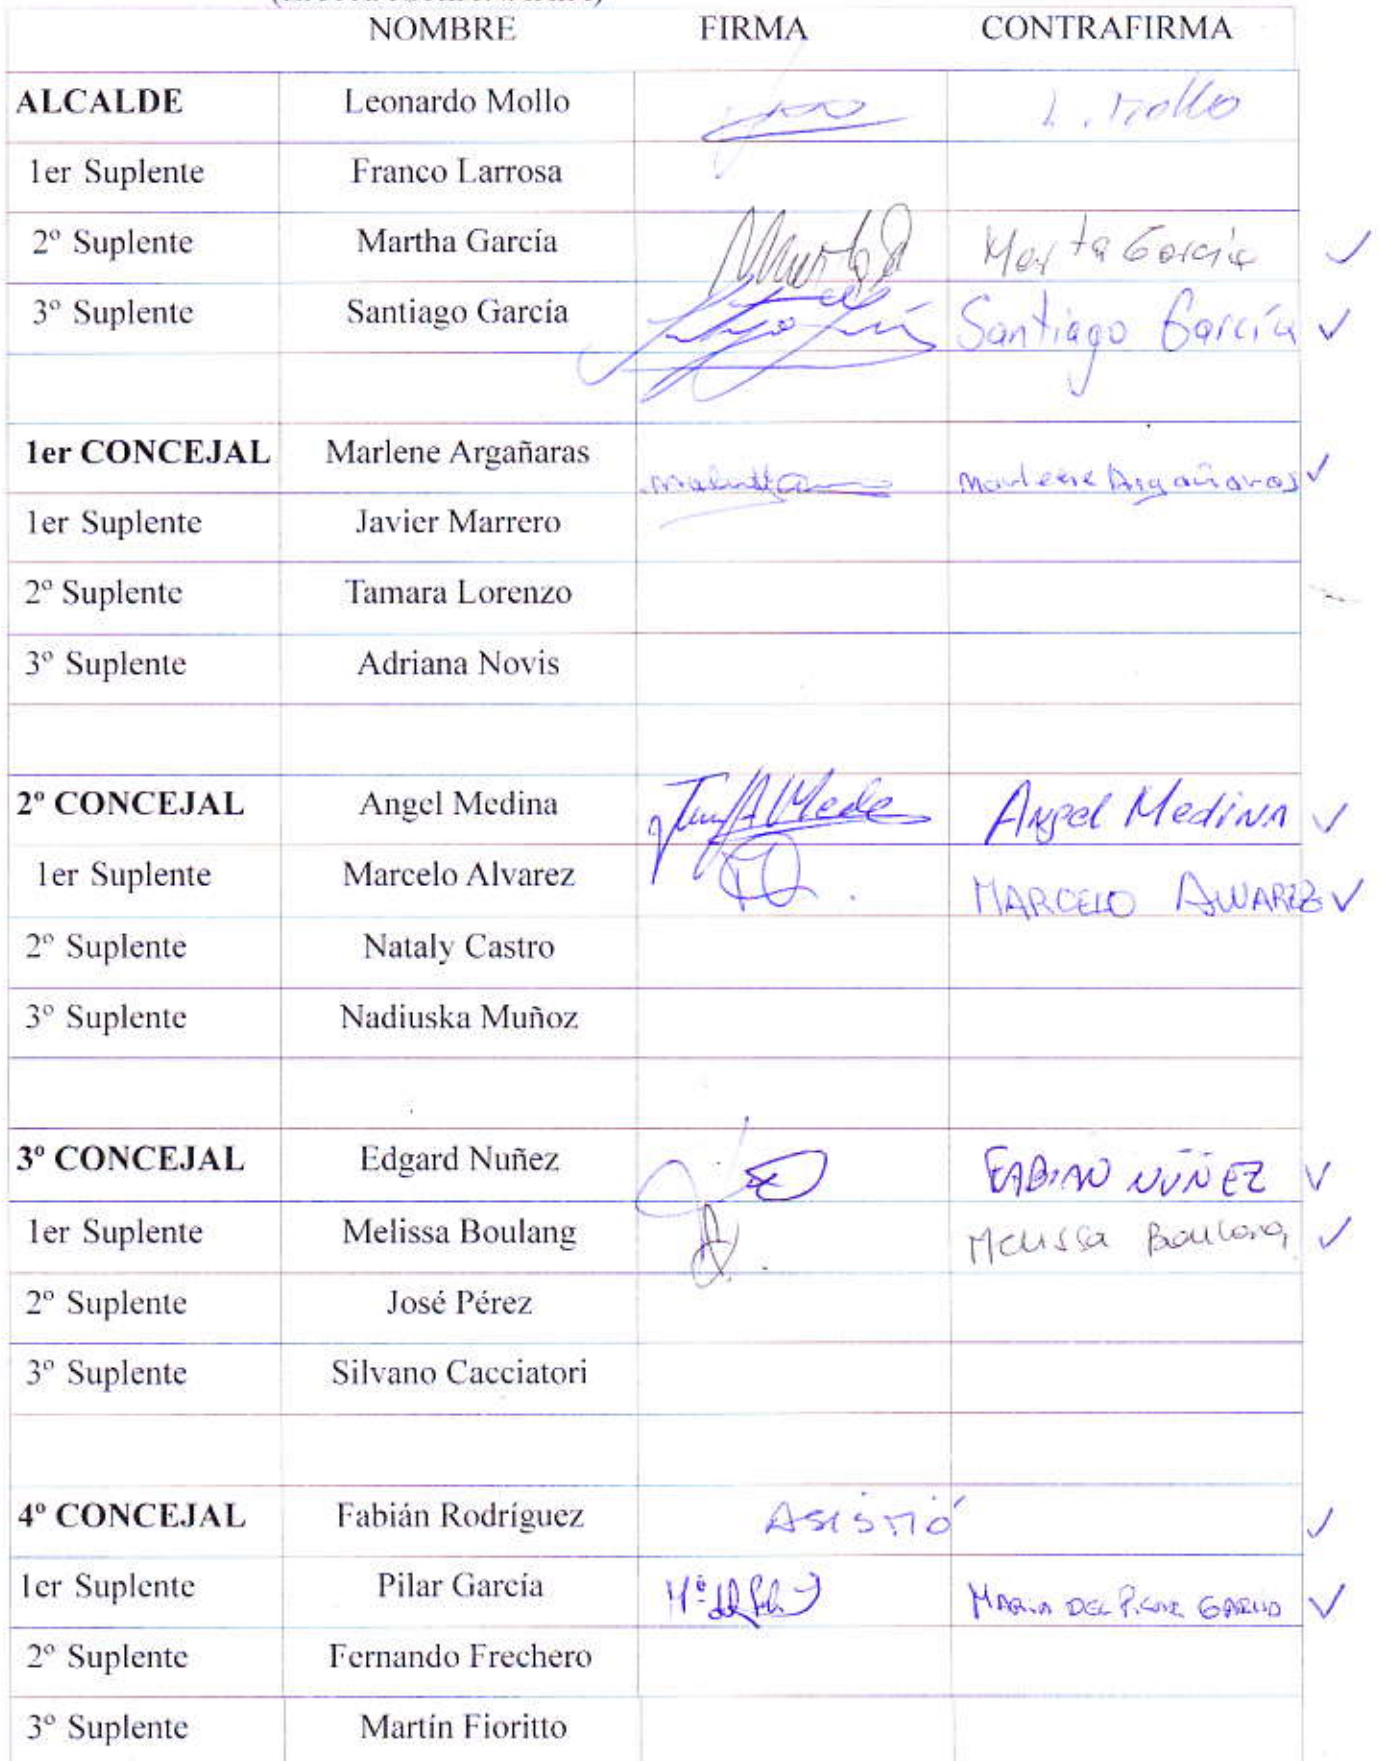 NOMBRE FIRMA CONTRAFIRMA
ALCALDE Leonardo Mollo L. Mollo
1er Suplente Franco Larrosa
2º Suplente Martha García Marta García ✓
3º Suplente Santiago García Santiago García ✓
1er CONCEJAL Marlene Argañaras Marlene Argañaras ✓
1er Suplente Javier Marrero
2º Suplente Tamara Lorenzo
3º Suplente Adriana Novis
2º CONCEJAL Angel Medina Angel Medina ✓
1er Suplente Marcelo Alvarez MARCELO ALVAREZ ✓
2º Suplente Nataly Castro
3º Suplente Nadiuska Muñoz
3º CONCEJAL Edgard Nuñez FABIAN NÚÑEZ ✓
1er Suplente Melissa Boulang Melissa Boulang ✓
2º Suplente José Pérez
3º Suplente Silvano Cacciatori
4º CONCEJAL Fabián Rodríguez ASISTIÓ ✓
1er Suplente Pilar García MARIA DEL PILAR GARCIA ✓
2º Suplente Fernando Frechero
3º Suplente Martín Fioritto